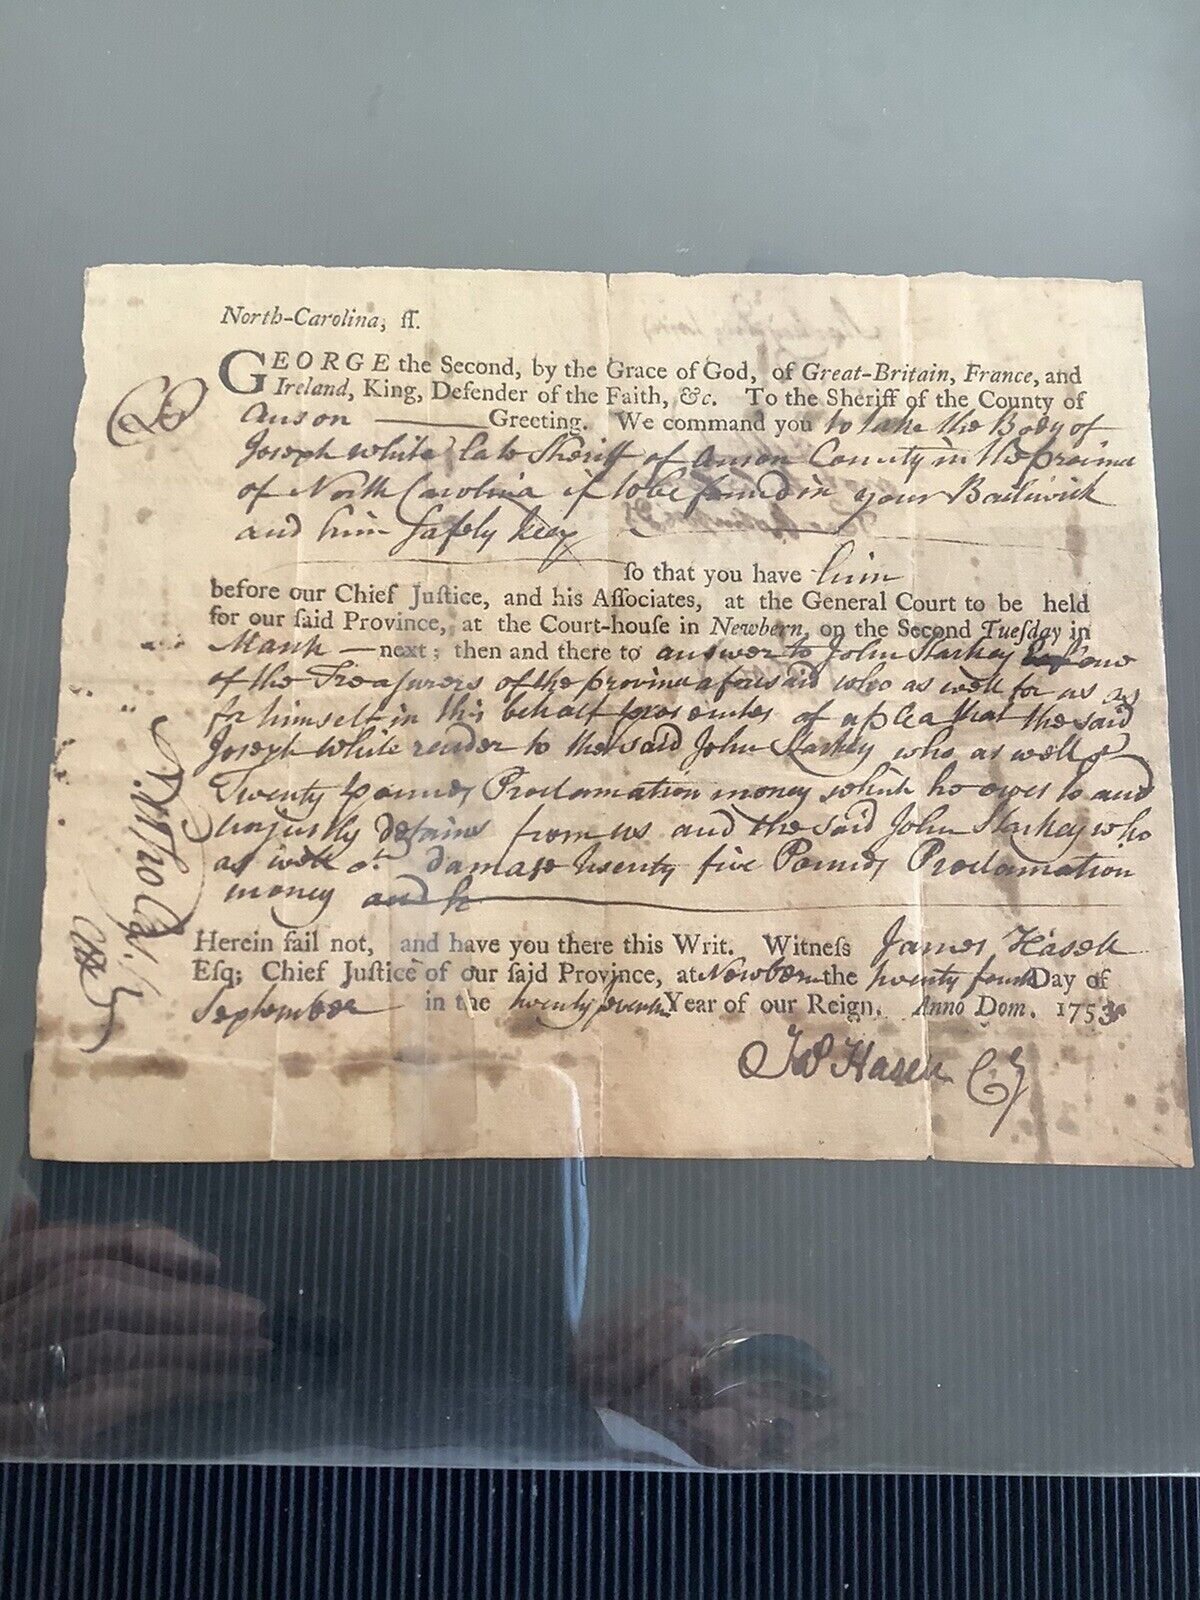 North-Carolina, ſſ.
GEORGE the Second, by the Grace of God, of Great-Britain, France, and
Ireland, King, Defender of the Faith, &c. To the Sheriff of the County of
Anson Greeting. We command you to take the Body of
Joseph White late Sheriff of Anson County in the province
of North Carolina if to be found in your Bailiwick
and him safely keep
ſo that you have him
before our Chief Juſtice, and his Aſſociates, at the General Court to be held
for our ſaid Province, at the Court-houſe in Newbern, on the Second Tueſday in
March — next; then and there to answer to John Starkey one
of the Treasurers of the province aforesaid who as well for us as
for himself in this behalf prosecutes of a plea that the said
Joseph White render to the said John Starkey who as well &c
Twenty pounds Proclamation money which he owes to and
unjustly detains from us and the said John Starkey who
as well &c damage twenty five Pounds Proclamation
money and h
Herein fail not, and have you there this Writ. Witneſs James Hasell
Eſq; Chief Juſtice of our ſaid Province, at Newbern the twenty fourth Day of
September in the twenty seventh Year of our Reign. Anno Dom. 1753
Jas Hasell CJ